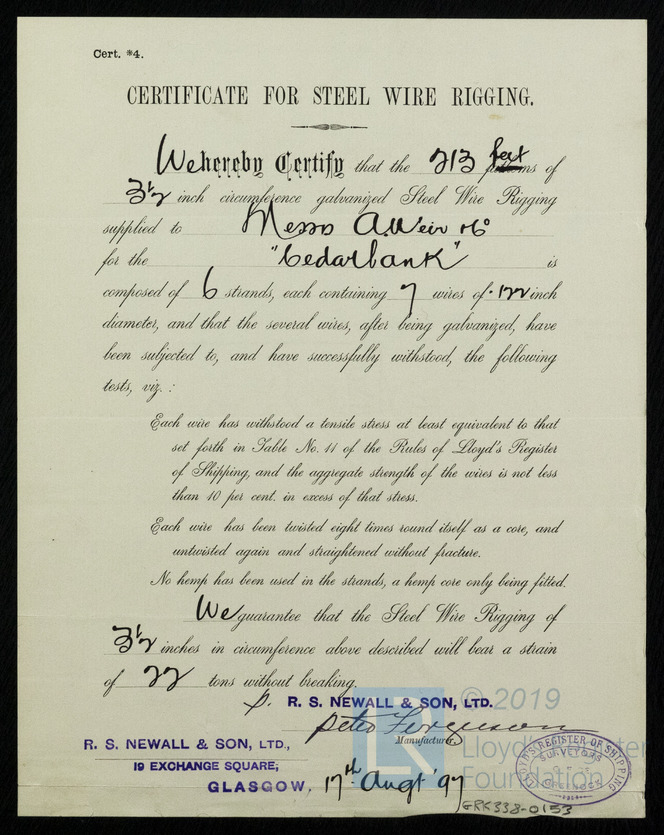 Cert. *4.
CERTIFICATE FOR STEEL WIRE RIGGING.
We hereby Certify that the 213 feet of
3½ inch circumference galvanized Steel Wire Rigging
supplied to Messrs A Weir & Co
for the "Cedarbank" is
composed of 6 strands, each containing 7 wires of .122 inch
diameter, and that the several wires, after being galvanized, have
been subjected to, and have successfully withstood, the following
tests, viz. :
Each wire has withstood a tensile stress at least equivalent to that
set forth in Table No. 11 of the Rules of Lloyd's Register
of Shipping, and the aggregate strength of the wires is not less
than 10 per cent. in excess of that stress.
Each wire has been twisted eight times round itself as a core, and
untwisted again and straightened without fracture.
No hemp has been used in the strands, a hemp core only being fitted.
We guarantee that the Steel Wire Rigging of
3½ inches in circumference above described will bear a strain
of 22 tons without breaking.
p. R. S. NEWALL & SON, LTD.
Peter Ferguson
Manufacturer.
R. S. NEWALL & SON, LTD.,
19 EXCHANGE SQUARE,
GLASGOW, 17th Augt '97
LLOYD'S REGISTER OF SHIPPING
SURVEYORS
GREENOCK
GRK338-0153
© 2019
LR
Lloyd's Register
Foundation